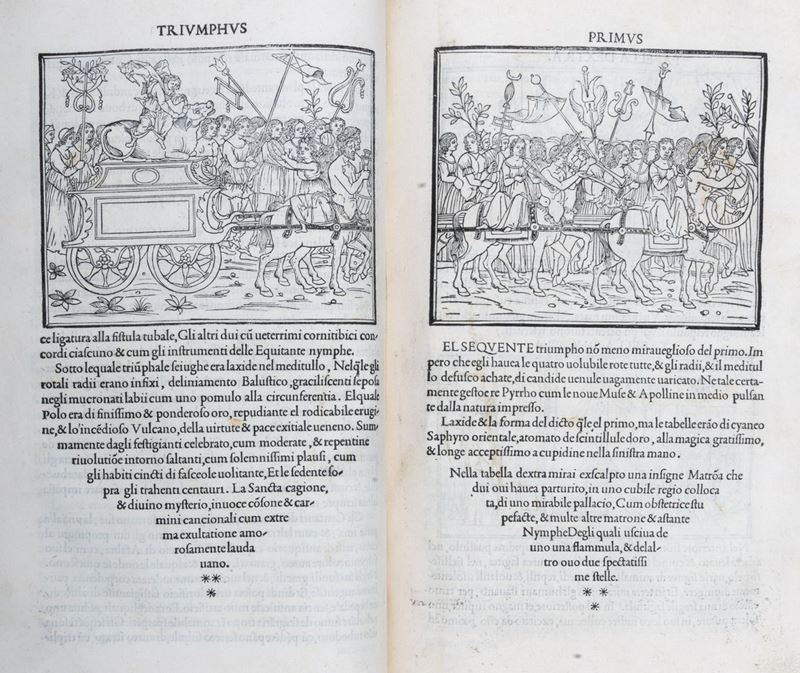 TRIVMPHVS
ce ligatura alla fistula tubale, Gli altri dui cū ueterrimi cornitibici con-
cordi ciascuno & cum gli instrumenti delle Equitante nymphe.
Sotto lequale triūphale seiughe era laxide nel meditullo, Nelq̄le gli
rotali radii erano infixi, deliniamento Balustico, graciliscenti seposa
negli mucronati labii cum uno pomulo alla circunferentia. Elquale
Polo era di finissimo & ponderoso oro, repudiante el rodicabile erugi-
ne, & lo'incēdioso Vulcano, della uirtute & pace exitiale ueneno. Sum-
mamente dagli festigianti celebrato, cum moderate, & repentine
riuolutiōe intorno saltanti, cum solemnissimi plausi, cum
gli habiti cincti di fasceole uolitante, Et le sedente so-
pra gli trahenti centauri. La Sancta cagione,
& diuino mysterio, inuoce cōsone & car-
mini cancionali cum extre
ma exultatione amo-
rosamente lauda
uano.
**
*
PRIMVS
EL SEQVENTE triumpho nō meno miraueglioso del primo. Im
pero che egli hauea le quatro uolubile rote tutte, & gli radii, & il meditul
lo defusco achate, di candide uenule uagamente uaricato. Ne tale certa-
mente gestoe re Pyrrho cum le noue Muse & Apolline in medio pulsan
te dalla natura impresso.
Laxide & la forma del dicto q̄le el primo, ma le tabelle erāo di cyaneo
Saphyro orientale, atomato de scintillule doro, alla magica gratissimo,
& longe acceptissimo a cupidine nella sinistra mano.
Nella tabella dextra mirai exscalpto una insigne Matrōa che
dui oui hauea parturito, in uno cubile regio colloca
ta, di uno mirabile pallacio, Cum obstetrice stu
pefacte, & multe altre matrone & astante
Nymphe Degli quali usciua de
uno una flammula, & delal-
tro ouo due spectatissi
me stelle.
* *
*